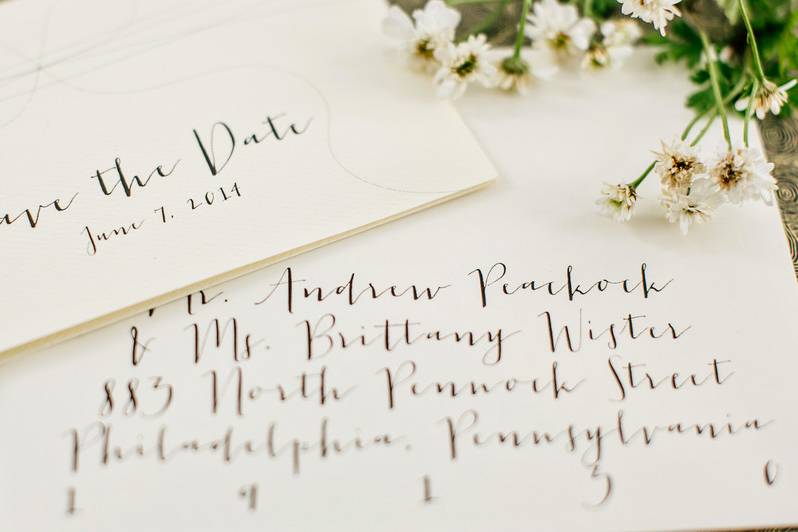 ave the Date
June 7, 2014
Mr. Andrew Peackock
& Ms. Brittany Wister
883 North Pennock Street
Philadelphia, Pennsylvania
1 9 1 3 0